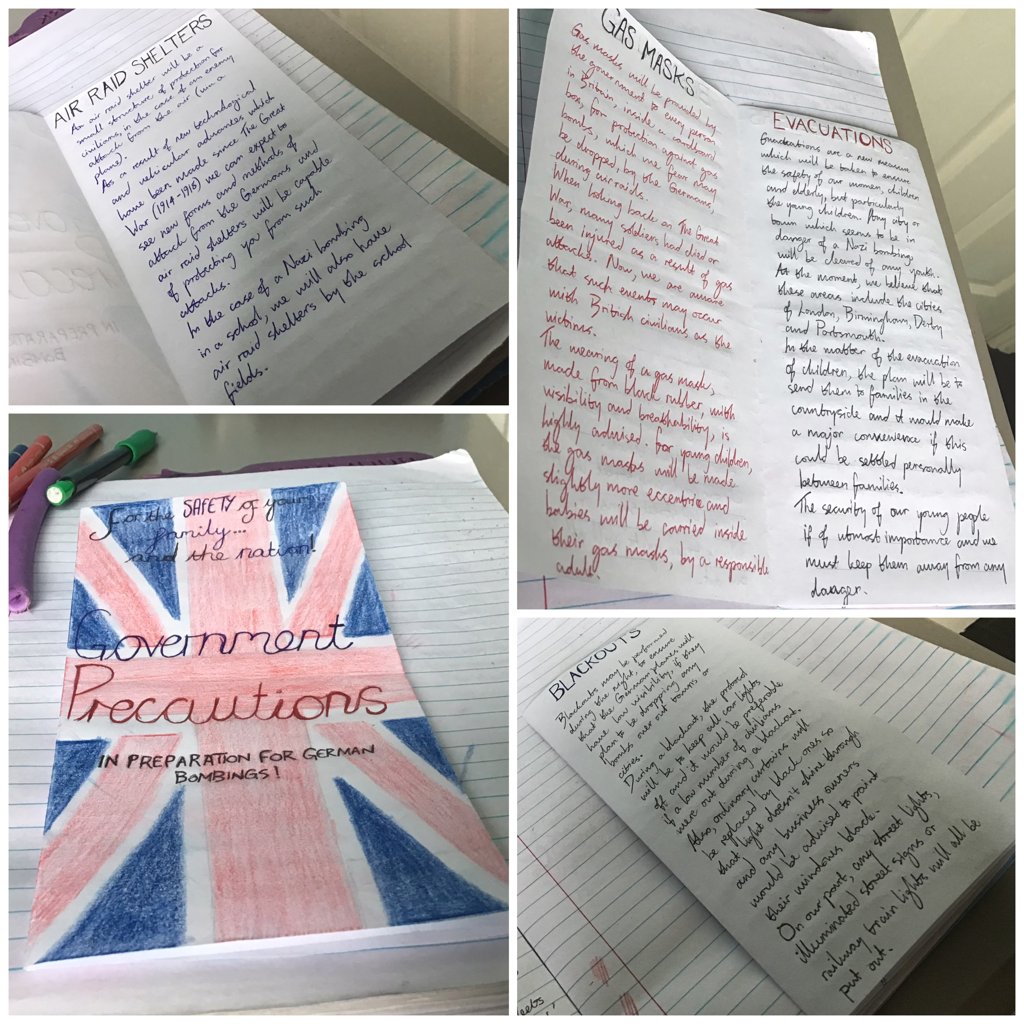 AIR RAID SHELTERS
An air raid shelter will be a
small structure of protection for
civilians, in the case of an enemy
attack from the air (via a
plane).
As a result of new technological
and vehicular advances which
have been made since The Great
War (1914-1918) we can expect to
see new forms and methods of
attack from the Germans and
air raid shelters will be capable
of protecting you from such
attacks.
In the case of a Nazi bombing
in a school, we will also have
air raid shelters by the school
fields.
GAS MASKS
Gas masks will be provided by
the government to every person
in Britain, inside a cardboard
box, for protection against gas
bombs, which we fear may
be dropped, by the Germans,
during air raids.
When looking back on The Great
War, many soldiers had died or
been injured as a result of gas
attacks. Now, we are aware
that such events may occur
with British civilians as the
victims.
The wearing of a gas mask,
made from black rubber, with
visibility and breathability, is
highly advised. For young children,
the gas masks will be made
slightly more eccentric and
babies will be carried inside
their gas masks, by a responsible
adult.
EVACUATIONS
Evacuations are a new measure
which will be taken to ensure
the safety of our women, children
and elderly, but particularly
the young children. Any city or
town which seems to be in
danger of a Nazi bombing
will be cleared of any youth.
At the moment, we believe that
these areas include the cities
of London, Birmingham, Derby
and Portsmouth.
In the matter of the evacuation
of children, the plan will be to
send them to families in the
countryside and it would make
a major convenience if this
could be settled personally
between families.
The security of our young people
if of utmost importance and we
must keep them away from any
danger.
for the SAFETY of your
family...
and the nation!
Government
Precautions
IN PREPARATION FOR GERMAN
BOMBINGS!
BLACKOUTS
Blackouts may be performed
during the night, to ensure
that the German planes will
have low visibility, if they
plan to be dropping any
bombs over out towns, or
cities.
During a blackout, the protocol
will be to keep all car lights
off and it would be preferable
if a low number of civilians
were out during a blackout.
Also, ordinary curtains will
be replaced by black ones so
that light doesn't shine through
and any business owners
would be advised to paint
their windows black.
On our part, any street lights,
illuminated street signs or
railway train lights will all be
put out.